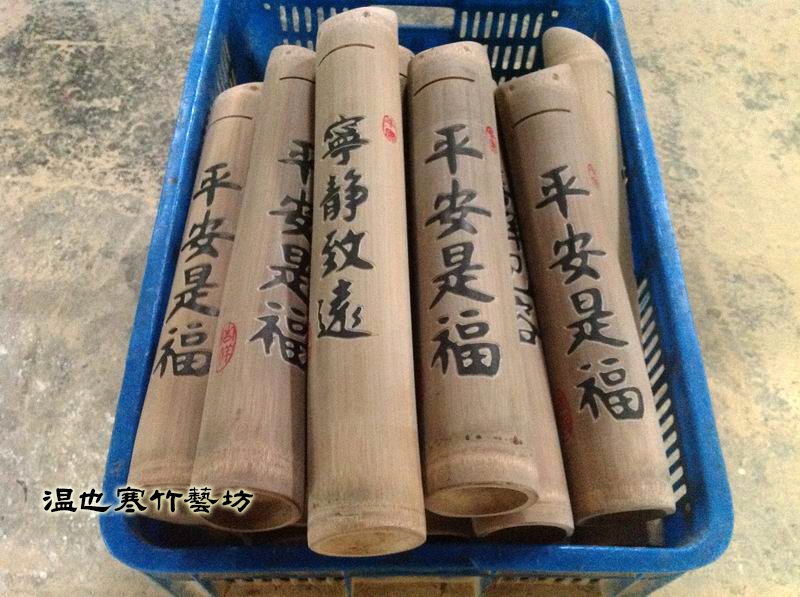 平安是福
平安是福
寧静致遠
平安是福
平安是福
温也寒竹藝坊